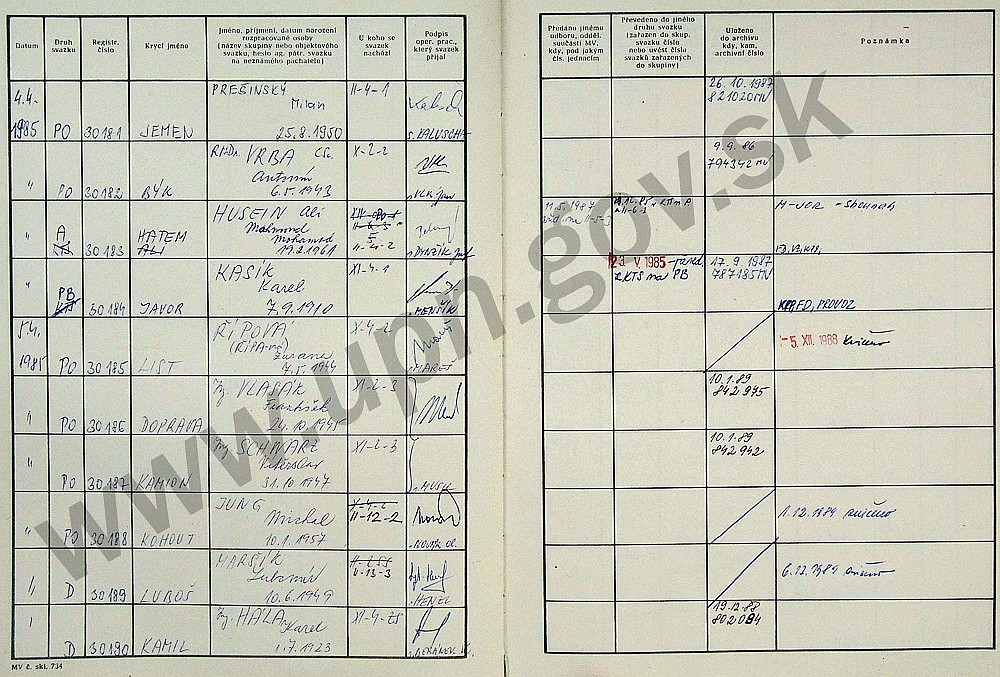 Datum
Druh svazku
Registr. číslo
Krycí jméno
Jméno, příjmení, datum narození
rozpracované osoby
(název skupiny nebo objektového
svazku, heslo ag. pátr. svazku
na neznámého pachatele)
U koho se
svazek
nachází
Podpis
oper. prac.,
který svazek
přijal
Předáno jinému
odboru, odděl.
součásti MV,
kdy, pod jakým
čís. jednacím
Převedeno do jiného
druhu svazku
(zařazen do skup.
svazku číslo
nebo uvést čísla
svazků zařazených
do skupiny)
Uloženo
do archivu
kdy, kam,
archivní číslo
Poznámka
4.4. PREŠINSKÝ II-4-1 26.10.1987
Milan 821020 MV
1985 PO 30181 JEMEN 25.8.1950 s. KALUSCHA
RNDr. VRBA CSc. X-2-2 9.9.86
Antonín 794342 MV
" PO 30182 BÝK 6.5.1943 VLK Jan
HUSEIN Ali 11.5.1987
Mahmoud
A HATEM Mohamed
" 30183 ALI 19.2.1961 II-4-2
KASÍK XI-4-1 23. V. 1985 17.9.1987
PB Karel z KTS na PB 787185 MV
" KTS 30184 JAVOR 7.9.1910 MENŠÍK PROVOZ
5.4. ŘÍPOVÁ X-4-2
(ŘÍPA-ová) -5. XII. 1988 zničeno
Zuzana
1985 PO 30185 LIST 7.5.1944 MAREŠ
Ing. VLASÁK XI-2-3 10.1.89
František 842975
" PO 30186 DOPRAVA 24.10.1945
Ing. SCHWARZ XI-2-3 10.1.89
Vítězslav 842942
" PO 30187 KAMION 31.10.1947 MUSIL
JUNG X-4-2
Michal II-12-2 1.12.1989 zničeno
" PO 30188 KOHOUT 10.1.1957 NOVÁK
MARŠÍK
Lubomír II-13-3 6.12.1989 zničeno
" D 30189 LUBOŠ 10.6.1949 HENZL
Ing. HÁLA XI-4-ZS 19.12.88
Karel 802084
" D 30190 KAMIL 1.7.1923
MV č. skl. 734
www.upn.gov.sk